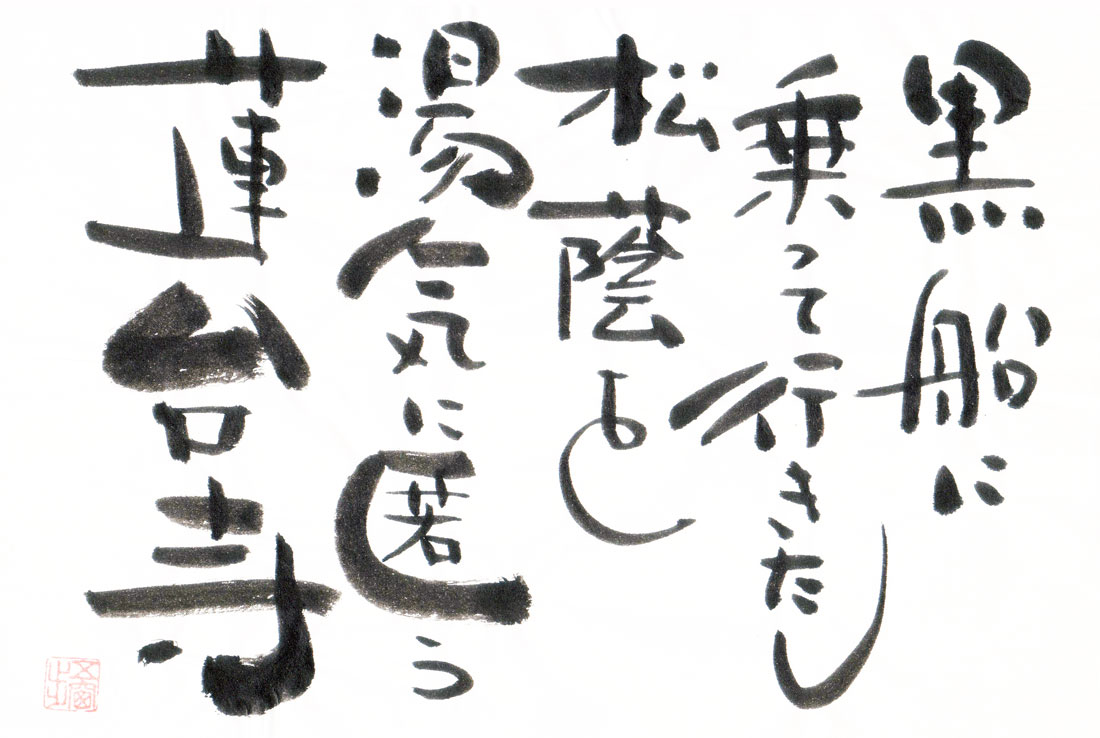 黒船に
乗って行きたし
松蔭を
湯気に匿う
蓮台寺